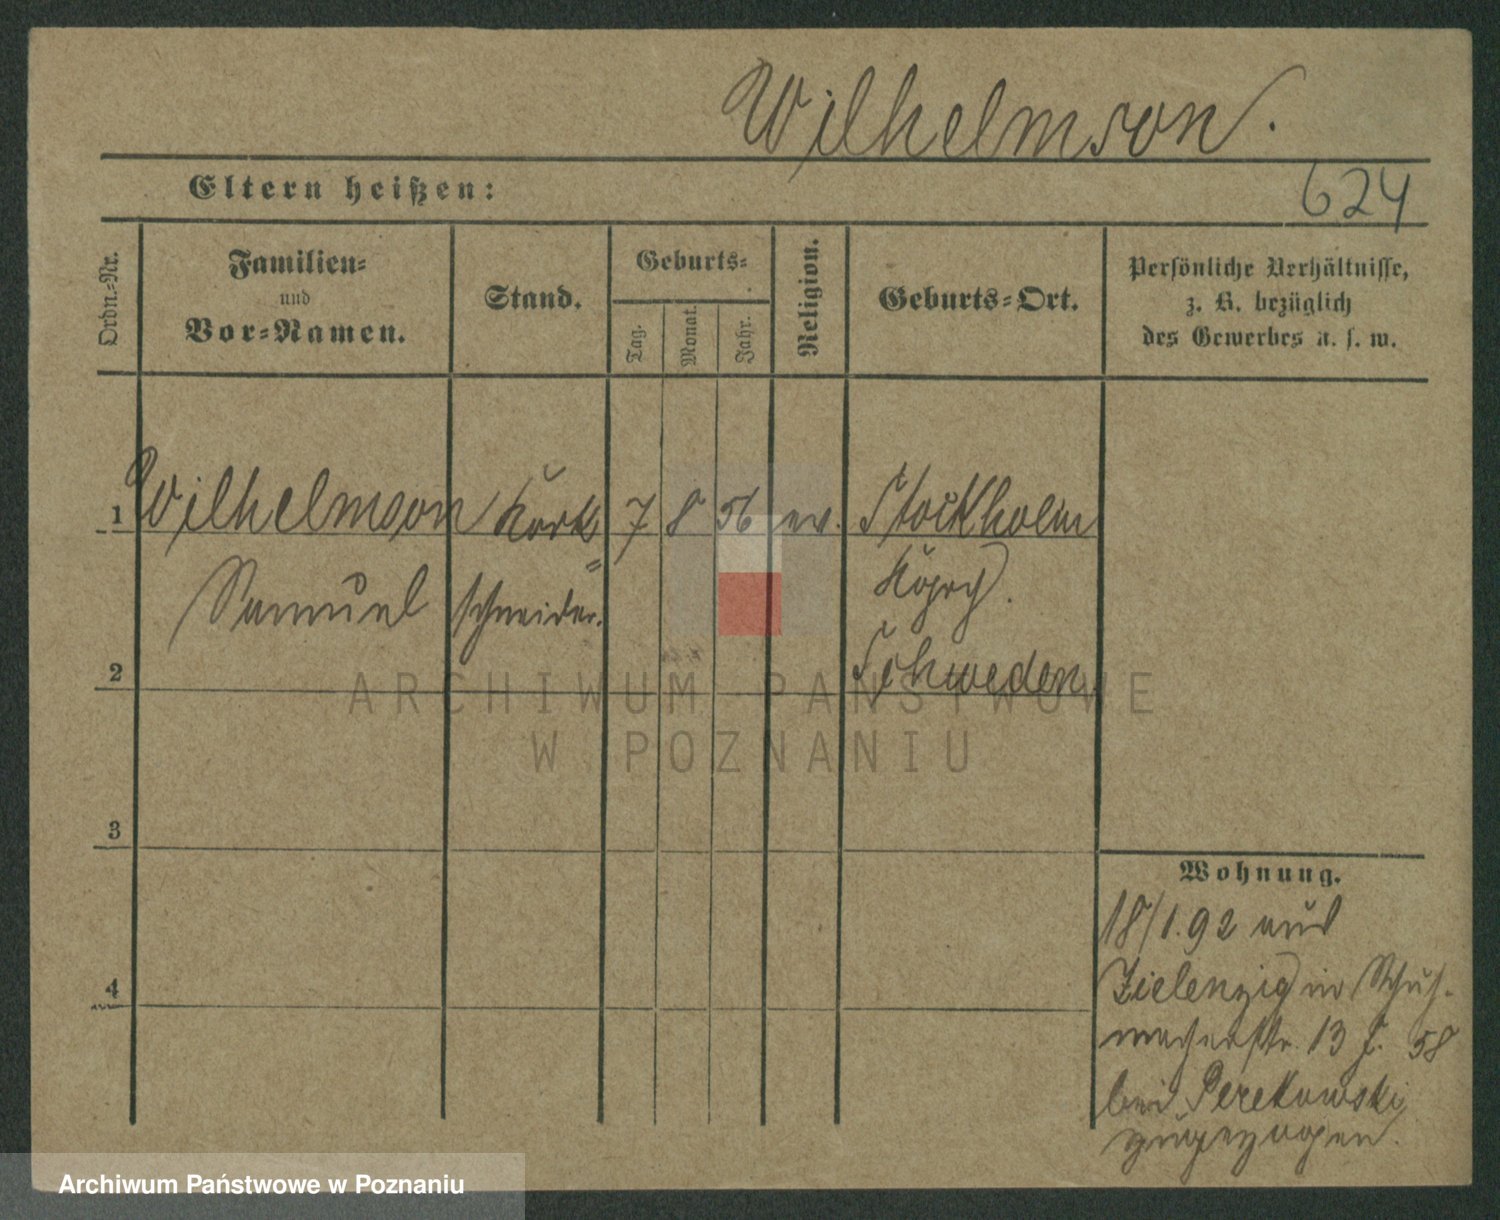 Wilhelmson.
Eltern heißen:
624
Ordn.-Nr.
Familien-
und
Vor-Namen.
Stand.
Geburts-
Tag.
Monat.
Jahr.
Religion.
Geburts-Ort.
Persönliche Verhältnisse,
z. B. bezüglich
des Gewerbes u. s. w.
1 Wilhelmson Kork 7 8 56 ev. Stockholm
Samuel schneider.
2 Schweden
3
4
Wohnung.
18/1.92 aus
Zielenzig in Schuh-
macherstr. 13 J. 58
bei Perekowski
zugezogen.
ARCHIWUM PAŃSTWOWE
W POZNANIU
Archiwum Państwowe w Poznaniu